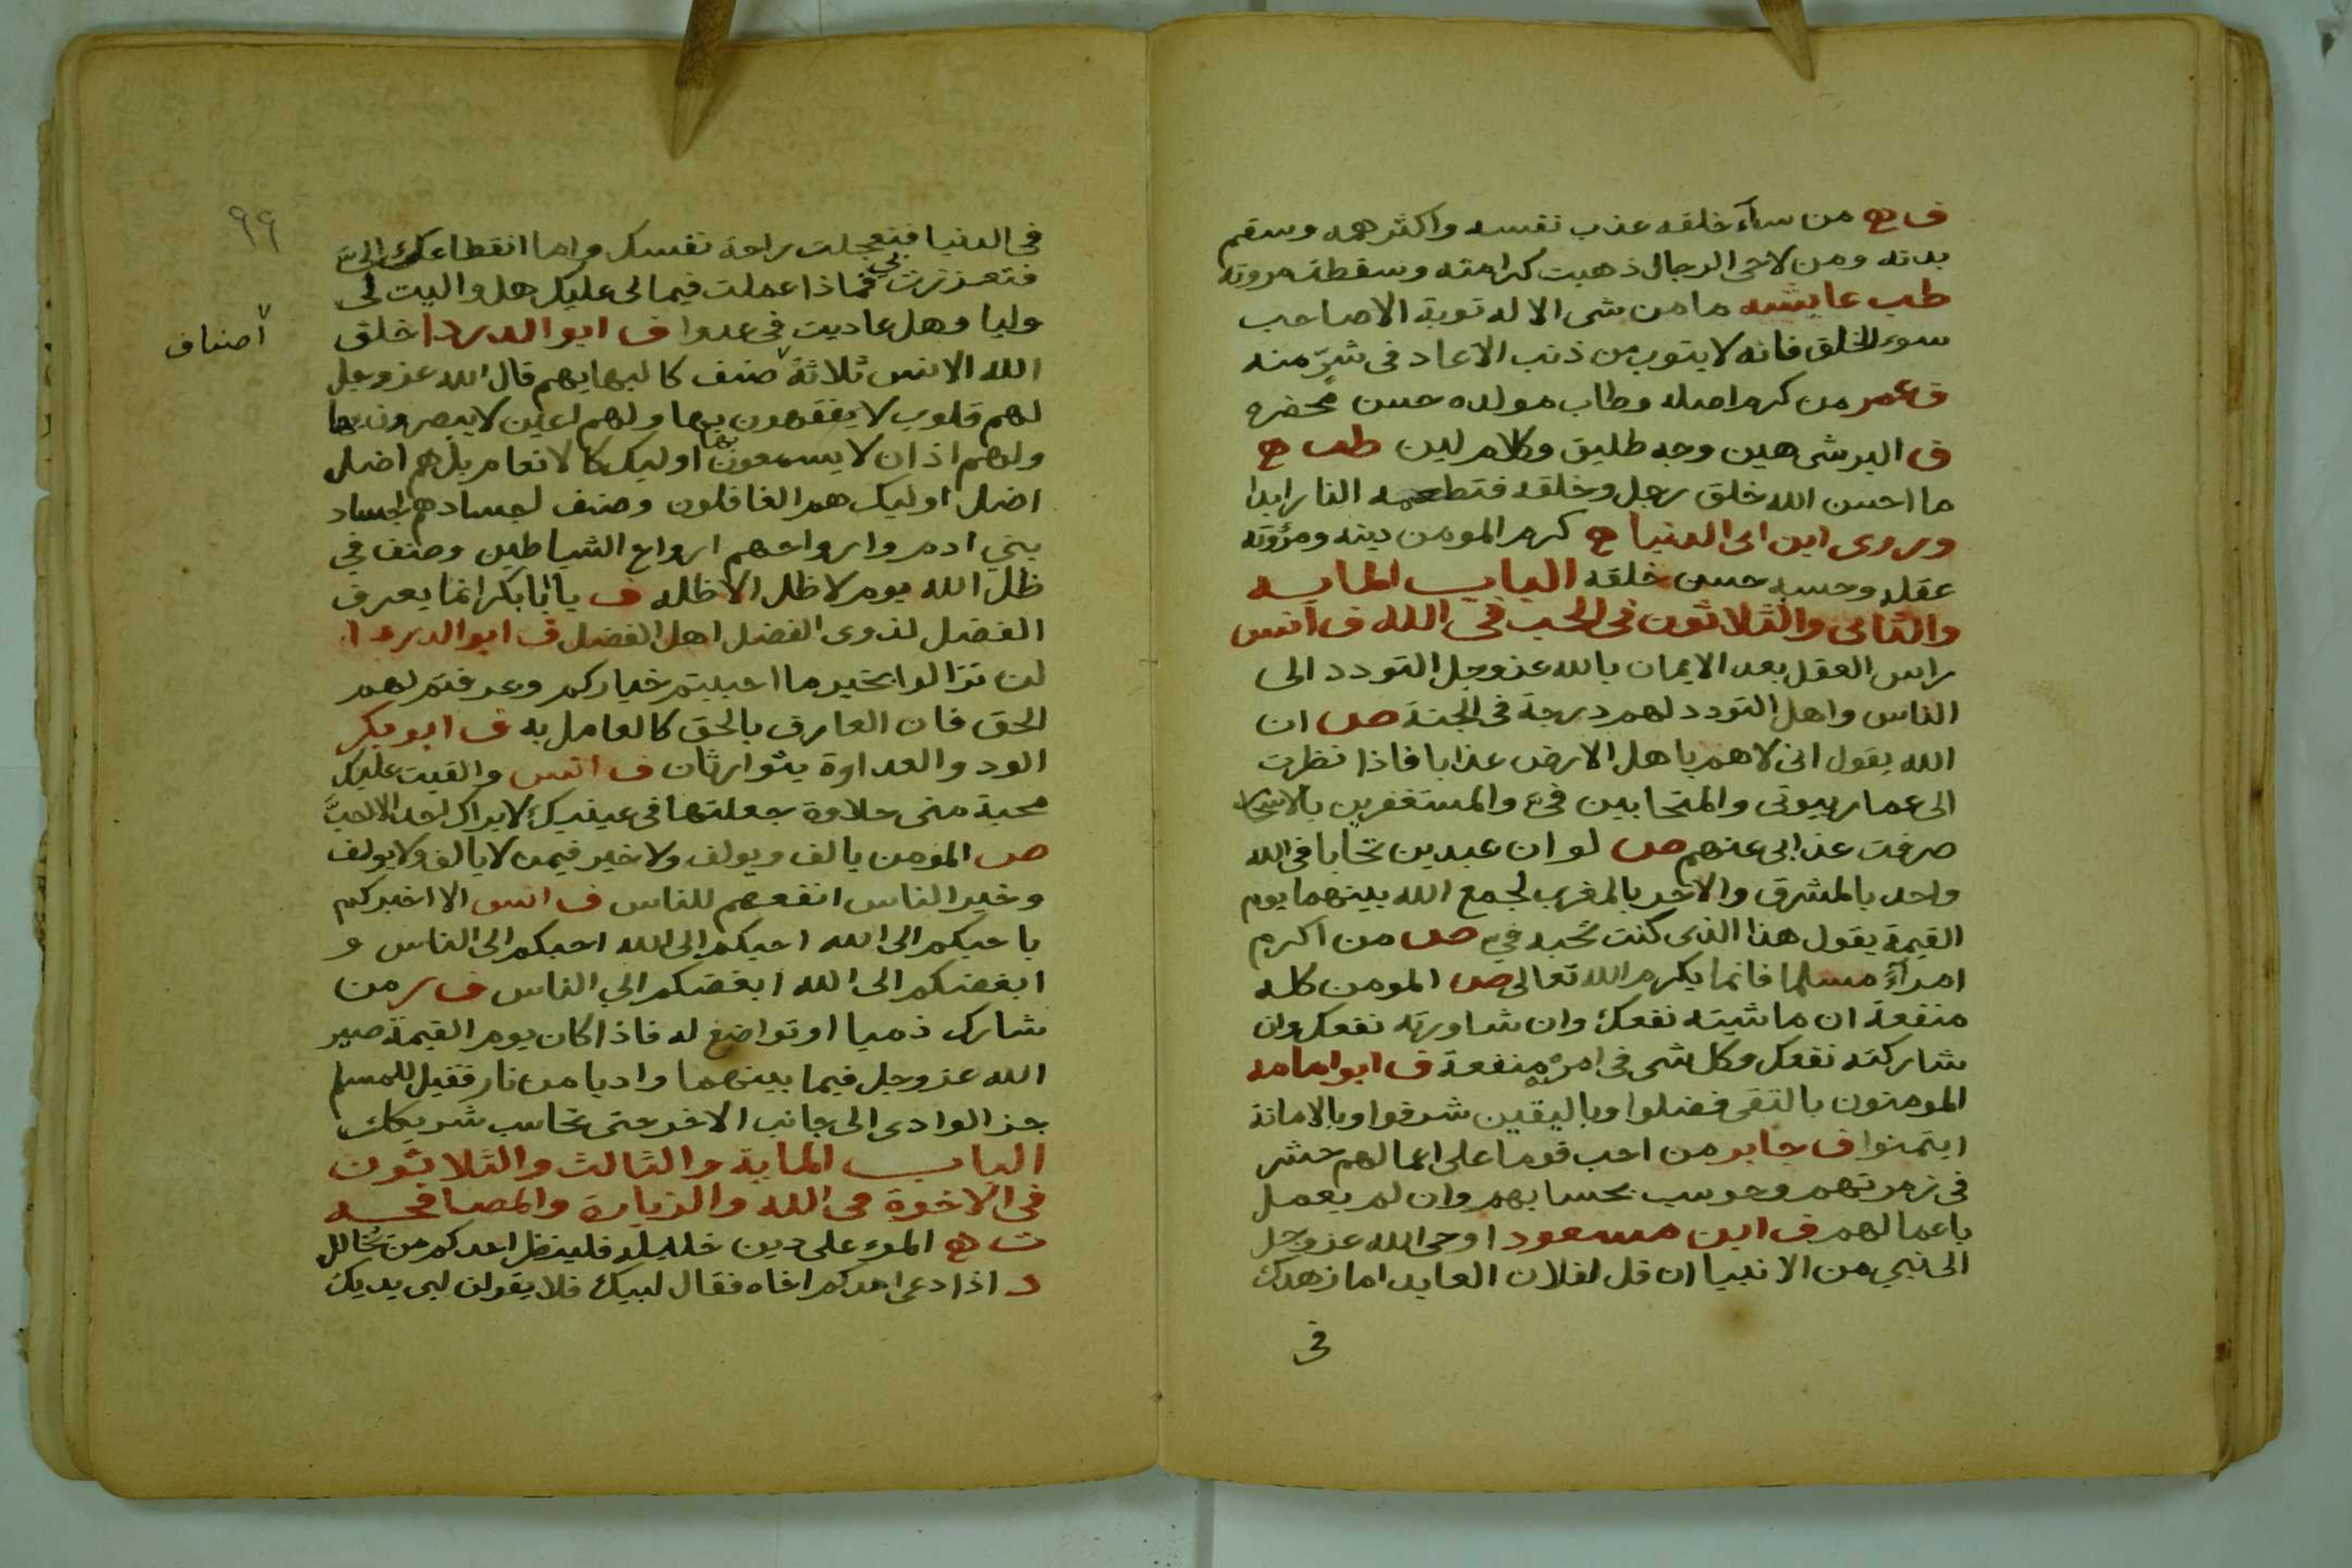 ف ه من ساء خلقه عذب نفسه واكثر همه وسقم
بدنه ومن لاحى الرجال ذهبت كرامته وسقطت مروته
طب عايشه ما من شى الا له توبة الا صاحب
سوء الخلق فانه لا يتوب من ذنب الا عاد فى شرّ منه
ف عمر من كرم اصله وطاب مولده حسن محضره
ف البر شى هين وجه طليق وكلام لين طب ه
ما احسن الله خلق رجل وخلقه فتطعمه النار ابدا
وروى ابن ابى الدنيا ه كرم المومن دينه ومرؤته
عقله وحسبه حسن خلقه الباب المايه
والثانى والثلاثون فى الحب فى الله ف انس
راس العقل بعد الايمان بالله عز وجل التودد الى
الناس واهل التودد لهم درجة فى الجنة ص ان
الله يقول انى لاهم باهل الارض عذابا فاذا نظرت
الى عمار بيوتى والمتحابين فىّ والمستغفرين بالاسحار
صرفت عذابى عنهم ص لو ان عبدين تحابا فى الله
واحد بالمشرق والاخر بالمغرب لجمع الله بينهما يوم
القيمة يقول هذا الذى كنت تحبه فىّ ص من اكرم
امرآً مسلما فانما يكرم الله تعالى ص المومن كله
منفعة ان ماشيته نفعك وان شاورته نفعك وان
شاركته نفعك وكل شى فى امره منفعة ف ابو امامه
المومنون بالتقى فضلوا وباليقين شرفوا وبالامانة
ايتمنوا ف جابر من احب قوما على اعمالهم حشر
فى زمرتهم وحوسب بحسابهم وان لم يعمل
باعمالهم ف ابن مسعود اوحى الله عز وجل
الى نبي من الانبيا ان قل لفلان العابد اما زهدك
فى
٩٩
فى الدنيا فتعجلت راحة نفسك واما انقطاعك الىّ
فتعززت بى فماذا عملت فيما لى عليك هل واليت لى
وليا وهل عاديت فى عدوا ف ابو الدردا خلق
اصناف
الله الانس ثلاثة صنف كالبهايم قال الله عز وجل
لهم قلوب لا يفقهون بها ولهم اعين لا يبصرون بها
ولهم اذان لا يسمعون بها اوليك كالانعام بل هم اضل
اضل اوليك هم الغافلون وصنف اجسادهم اجساد
بني ادم وارواحهم ارواح الشياطين وصنف في
ظل الله يوم لا ظل الا ظله ف يا ابا بكر انما يعرف
الفضل لذوى الفضل اهل الفضل ف ابو الدردا
لن تزالوا بخير ما احببتم خياركم وعرفتم لهم
الحق فان العارف بالحق كالعامل به ف ابو بكر
الود والعداوة يتوارثان ف انس والقيت عليك
محبة منى حلاوة جعلتها فى عينيك لا يراك احد الا احبَّك
ص المؤمن يالف ويولف ولا خير فيمن لا يالف ولا يولف
وخير الناس انفعهم للناس ف انس الا اخبركم
باحبكم الى الله احبكم الى الله احبكم الى الناس و
ابغضكم الى الله ابغضكم الي الناس ف ر من
شارك ذميا او تواضع له فاذا كان يوم القيمة صير
الله عز وجل فيما بينهما واديا من نار فقيل للمسلم
جز الوادى الى جانب الاخر حتى تحاسب شريكك
الباب الماية والثالث والثلاثون
فى الاخوة فى الله والزيارة والمصافحه
ت ه المرء على دين خليله فلينظر احدكم من يخالل
د اذا دعى احدكم اخاه فقال لبيك فلا يقولن لبى يديك